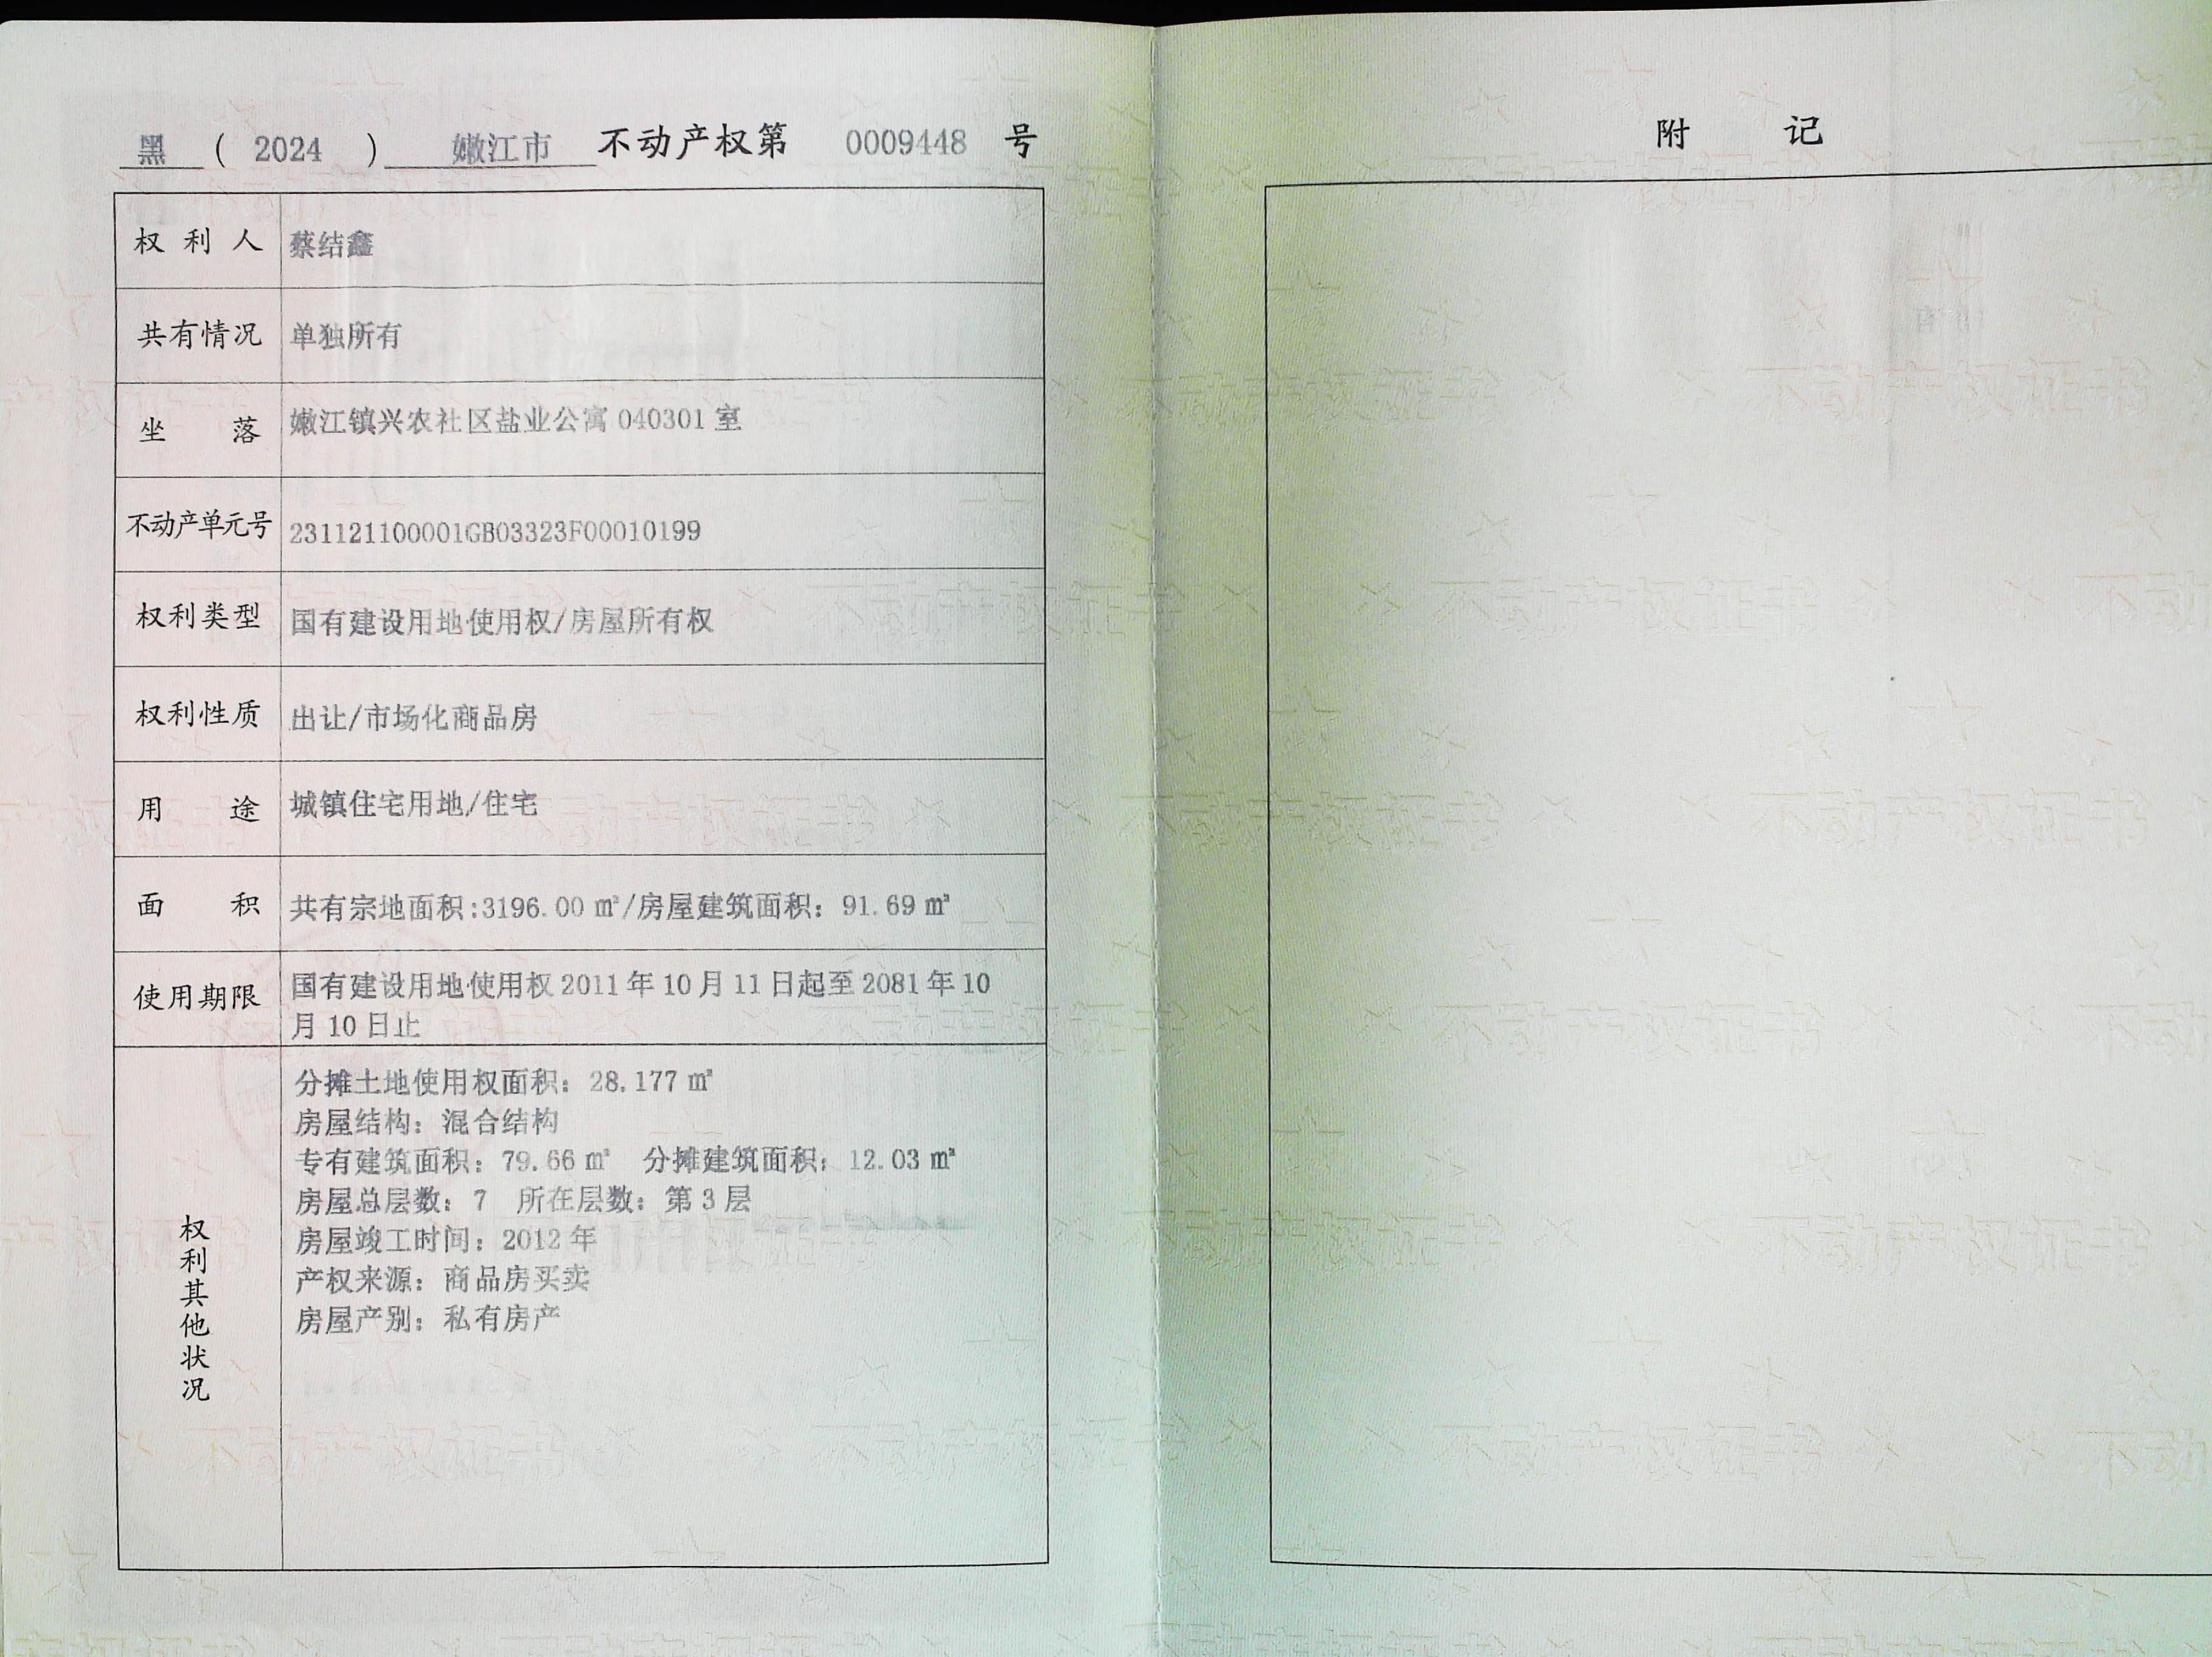 黑 ( 2024 ) 嫩江市 不动产权第 0009448 号
权利人 蔡结鑫
共有情况 单独所有
坐落 嫩江镇兴农社区盐业公寓 040301 室
不动产单元号 231121100001GB03323F00010199
权利类型 国有建设用地使用权/房屋所有权
权利性质 出让/市场化商品房
用途 城镇住宅用地/住宅
面积 共有宗地面积:3196.00 ㎡/房屋建筑面积：91.69 ㎡
使用期限 国有建设用地使用权 2011 年 10 月 11 日起至 2081 年 10
月 10 日止
权利其他状况
分摊土地使用权面积：28.177 ㎡
房屋结构：混合结构
专有建筑面积：79.66 ㎡ 分摊建筑面积：12.03 ㎡
房屋总层数：7 所在层数：第 3 层
房屋竣工时间：2012 年
产权来源：商品房买卖
房屋产别：私有房产
附记